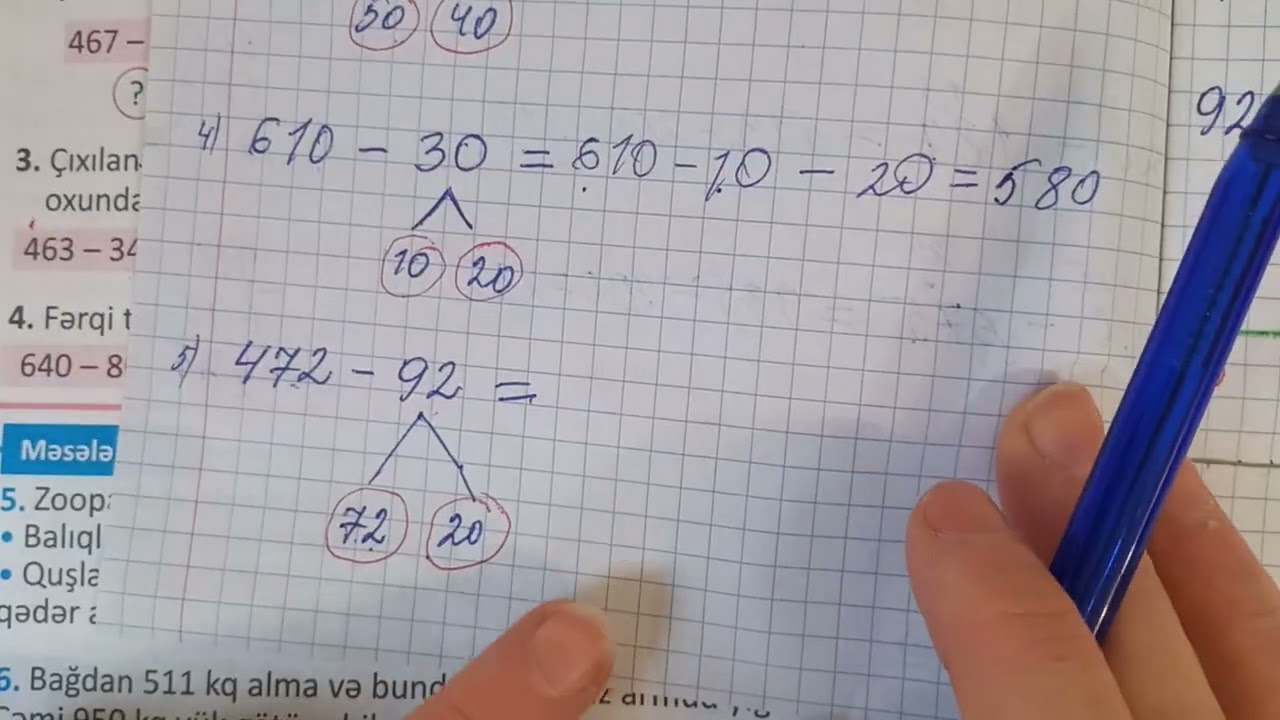 50 40
467 –
?
92
4) 610 – 30 = 610 – 10 – 20 = 580
10 20
3. Çıxılan
oxunda
463 – 34
4. Fərqi t
640 – 8
5) 472 – 92 =
72 20
Məsələ
5. Zoopa
• Balıql
• Quşla
qədər a
6. Bağdan 511 kq alma və bund